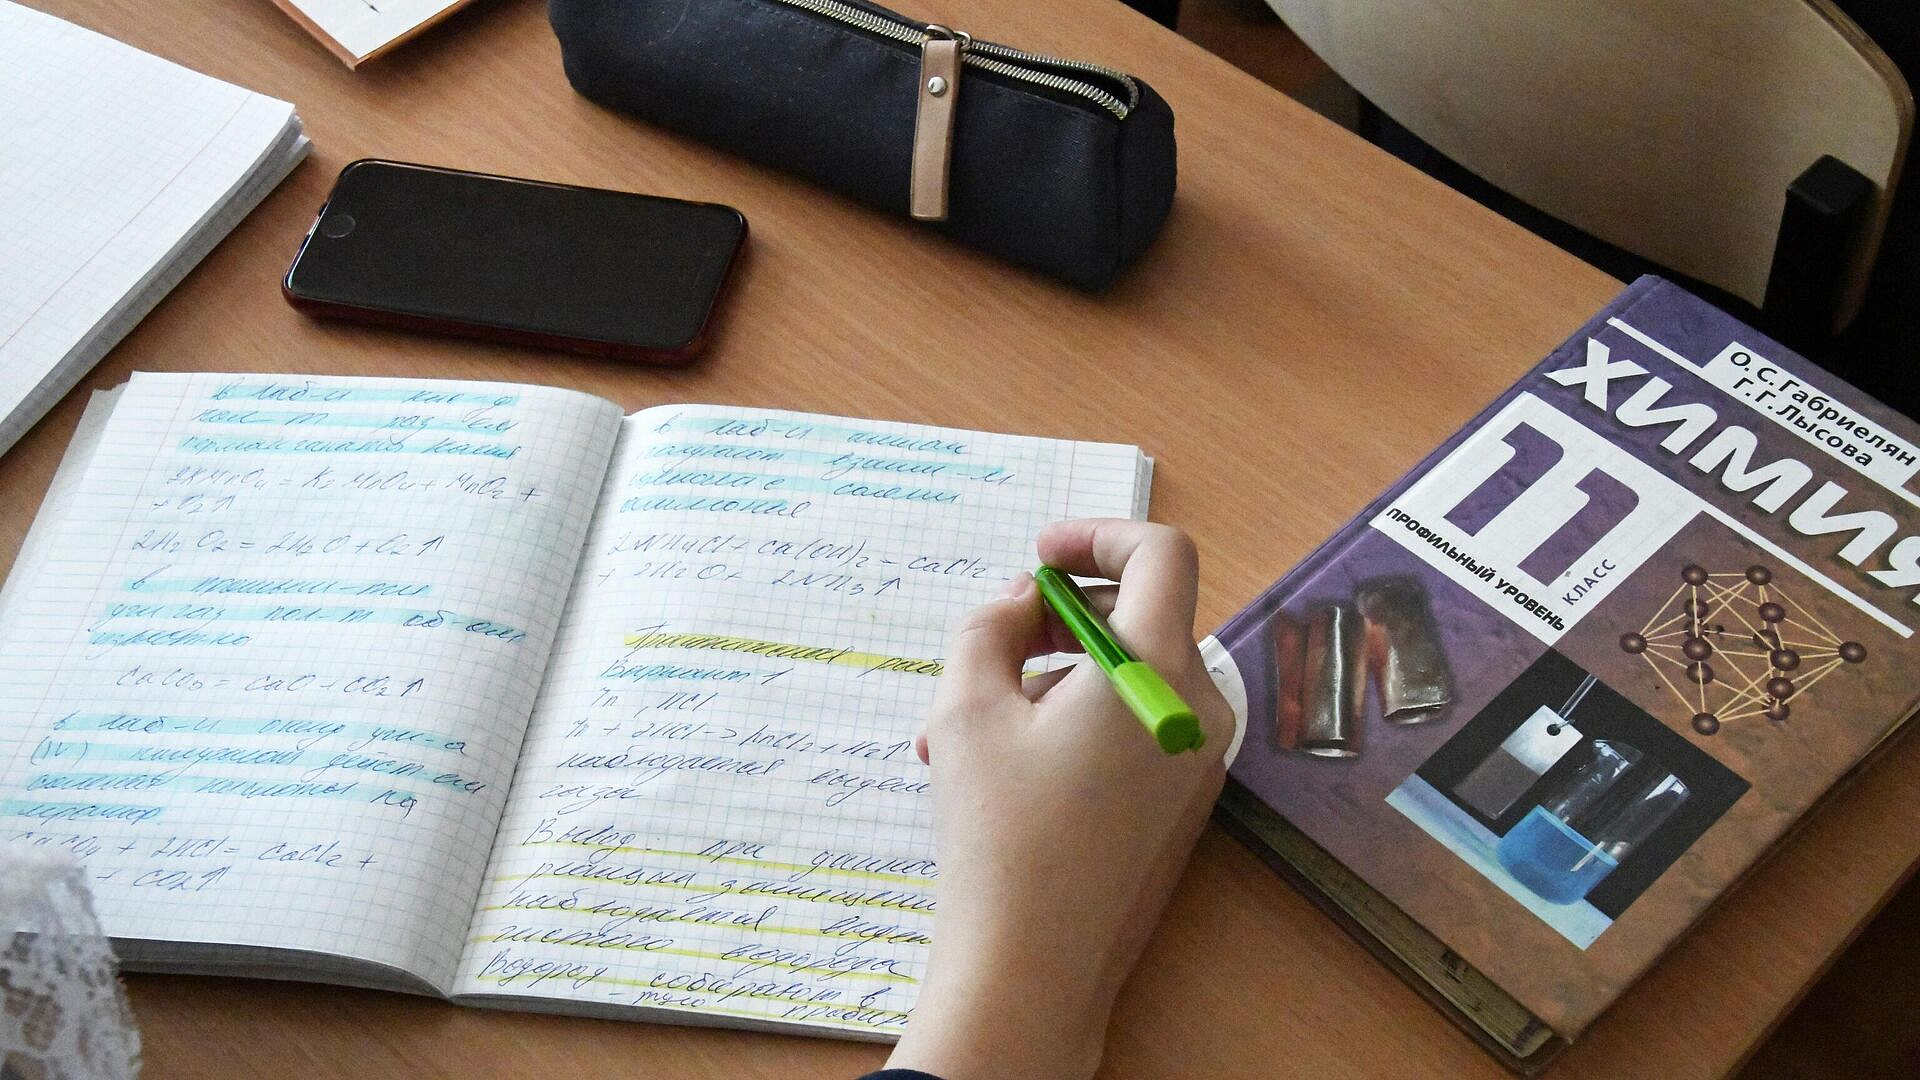 в лаб-и кис-д
пол-т раз-ем
перманганата калия
2KMnO4 = K2MnO4 + MnO2 +
+ O2↑
2H2O2 = 2H2O + O2↑
в промыш-ти
угл газ пол-т об-ом
известн-ка
CaCO3 = CaO + CO2↑
в лаб-и оксид угл-а
(IV) получают действ ем
соляная кислоты на
мрамор
+ 2HCl = CaCl2 +
+ CO2↑
в лаб-и аммиак
получают взаим-м
щелочи с солями
аммония
2NH4Cl + Ca(OH)2 = CaCl2 -
+ 2H2O + 2NH3↑
Практическая раб
Вариант 1
Zn, HCl
Zn + 2HCl -> ZnCl2 + H2↑
наблюдается выделе
газа
Вывод: при данной
реакции замещени
наблюдается выдел
чистого водорода
Водород собирают в
- пробир
О.С.Габриелян
Г.Г.Лысова
ХИМИЯ
11
КЛАСС
ПРОФИЛЬНЫЙ УРОВЕНЬ